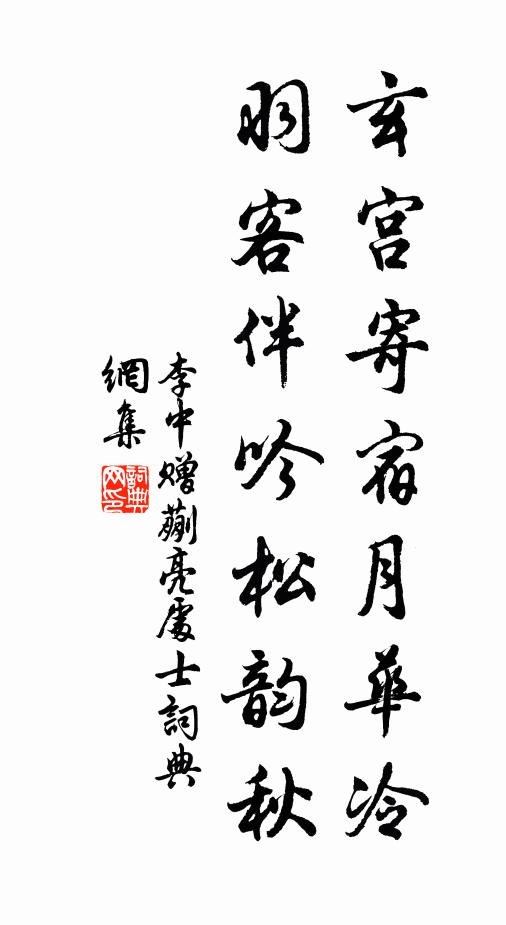 玄宮寄宿月華冷
羽客伴吟松韵秋
李中贈蒯亮處士詞典
網集
詞典
網印